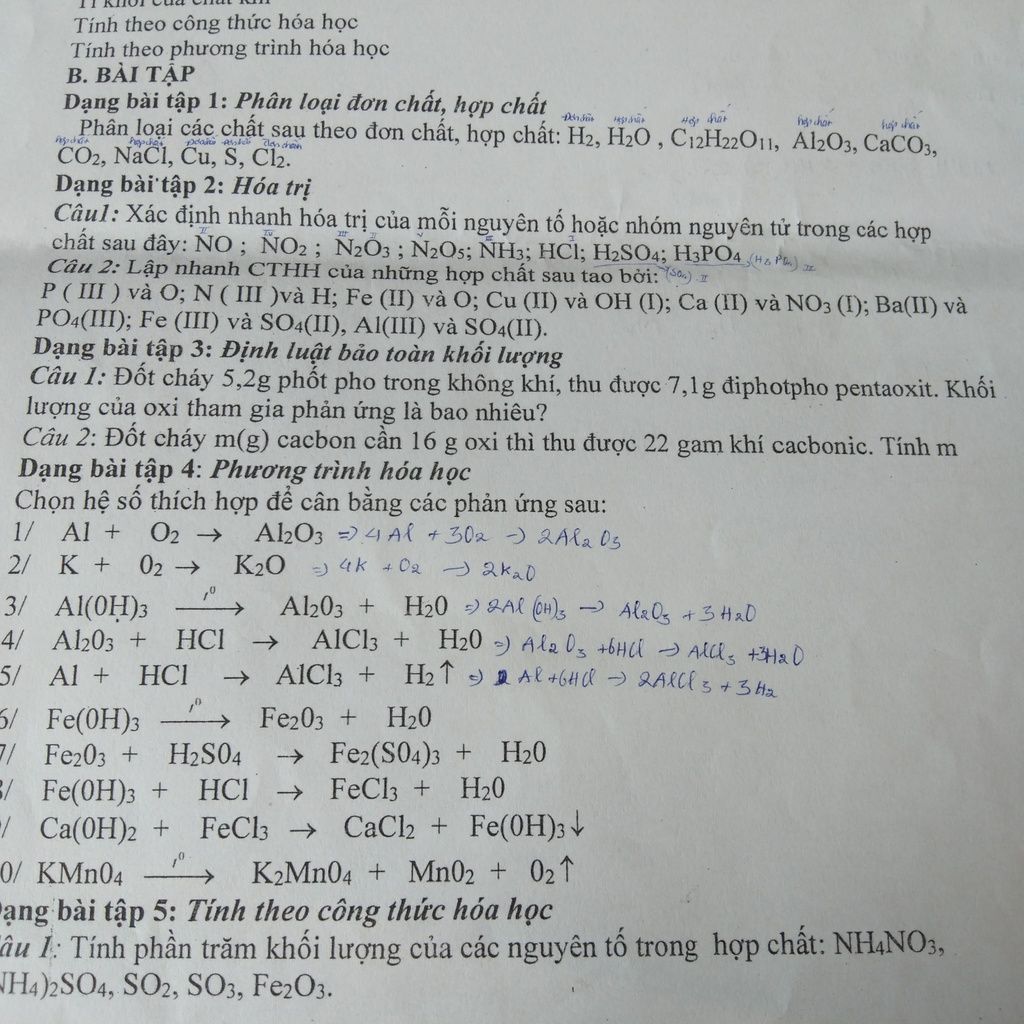 Tỉ khối của chất khí
Tính theo công thức hóa học
Tính theo phương trình hóa học
B. BÀI TẬP
Dạng bài tập 1: Phân loại đơn chất, hợp chất
Đơn chất hợp chất Hợp chất hợp chất hợp chất
Phân loại các chất sau theo đơn chất, hợp chất: H2, H2O , C12H22O11, Al2O3, CaCO3,
hợp chất hợp chất đơn chất đơn chất đơn chất
CO2, NaCl, Cu, S, Cl2.
Dạng bài tập 2: Hóa trị
Câu1: Xác định nhanh hóa trị của mỗi nguyên tố hoặc nhóm nguyên tử trong các hợp
II IV III V III I
chất sau đây: NO ; NO2 ; N2O3 ; N2O5; NH3; HCl; H2SO4; H3PO4
Câu 2: Lập nhanh CTHH của những hợp chất sau tao bởi: (SO4) II
P ( III ) và O; N ( III )và H; Fe (II) và O; Cu (II) và OH (I); Ca (II) và NO3 (I); Ba(II) và
PO4(III); Fe (III) và SO4(II), Al(III) và SO4(II).
Dạng bài tập 3: Định luật bảo toàn khối lượng
Câu 1: Đốt cháy 5,2g phốt pho trong không khí, thu được 7,1g điphotpho pentaoxit. Khối
lượng của oxi tham gia phản ứng là bao nhiêu?
Câu 2: Đốt cháy m(g) cacbon cần 16 g oxi thì thu được 22 gam khí cacbonic. Tính m
Dạng bài tập 4: Phương trình hóa học
Chọn hệ số thích hợp để cân bằng các phản ứng sau:
1/ Al + O2 → Al2O3 => 4Al + 3O2 → 2Al2O3
2/ K + 02 → K2O => 4K + O2 → 2K2O
3/ Al(0H)3 t0→ Al203 + H20 => 2Al(OH)3 → Al2O3 + 3H2O
4/ Al203 + HCl → AlCl3 + H20 => Al2O3 + 6HCl → AlCl3 + 3H2O
5/ Al + HCl → AlCl3 + H2↑ => 2Al + 6HCl → 2AlCl3 + 3H2
6/ Fe(0H)3 t0→ Fe203 + H20
7/ Fe203 + H2S04 → Fe2(S04)3 + H20
8/ Fe(0H)3 + HCl → FeCl3 + H20
/ Ca(0H)2 + FeCl3 → CaCl2 + Fe(0H)3↓
0/ KMn04 t0→ K2Mn04 + Mn02 + 02↑
Dạng bài tập 5: Tính theo công thức hóa học
Câu 1: Tính phần trăm khối lượng của các nguyên tố trong hợp chất: NH4NO3,
NH4)2SO4, SO2, SO3, Fe2O3.